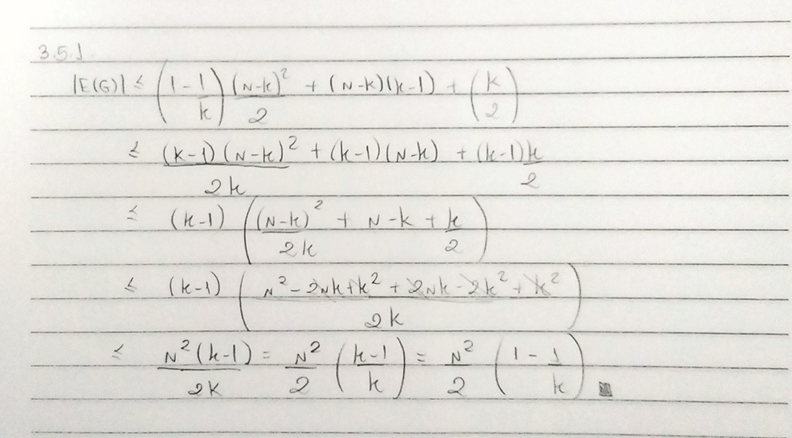 3.5.1
|E(G)| ≤ (1 - 1/k) (N-k)²/2 + (N-k)(k-1) + (k/2)
≤ (k-1)(N-k)²/2k + (k-1)(N-k) + (k-1)k/2
≤ (k-1) ((N-k)²/2k + N-k + k/2)
≤ (k-1) ((N² - 2Nk + k² + 2Nk - 2k² + k²)/2k)
≤ N²(k-1)/2k = N²/2 ((k-1)/k) = N²/2 (1 - 1/k) ■